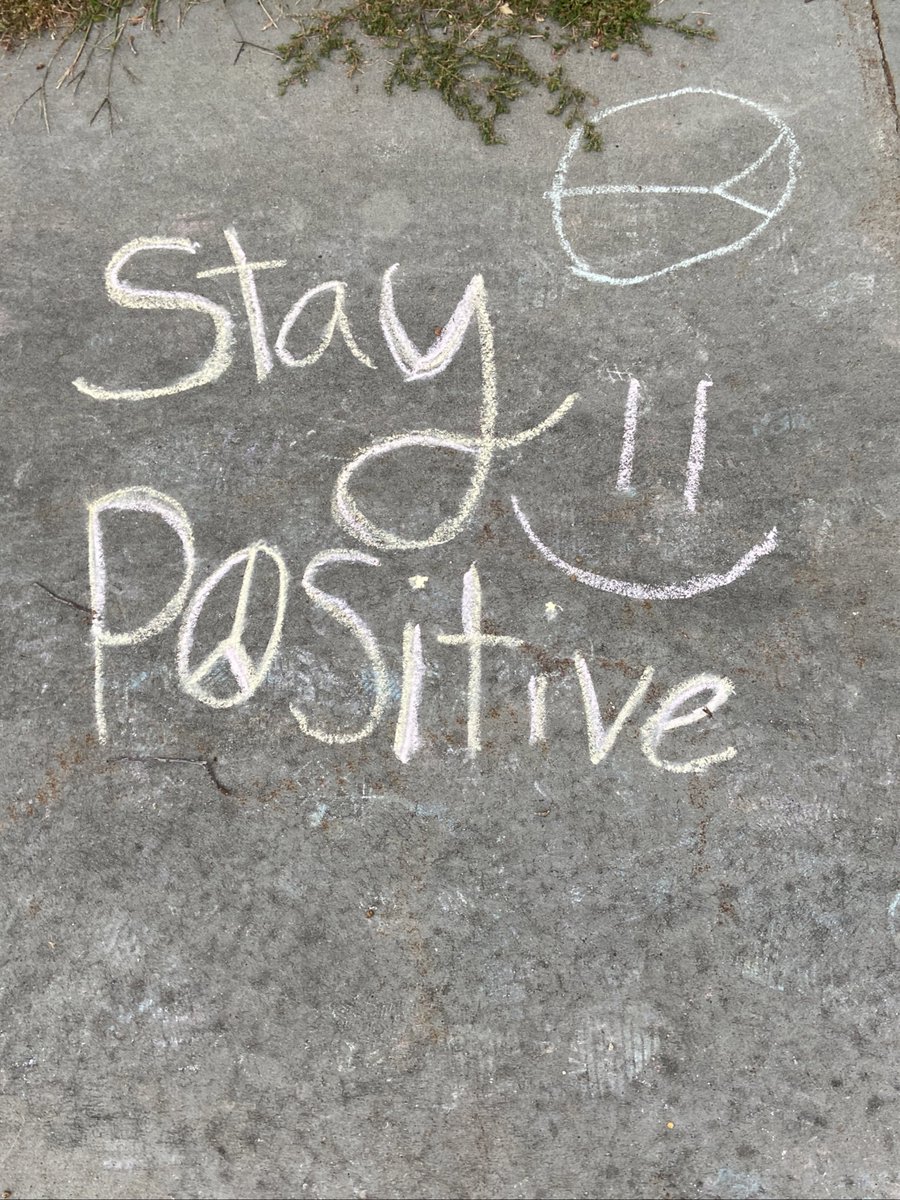 Stay
Positive